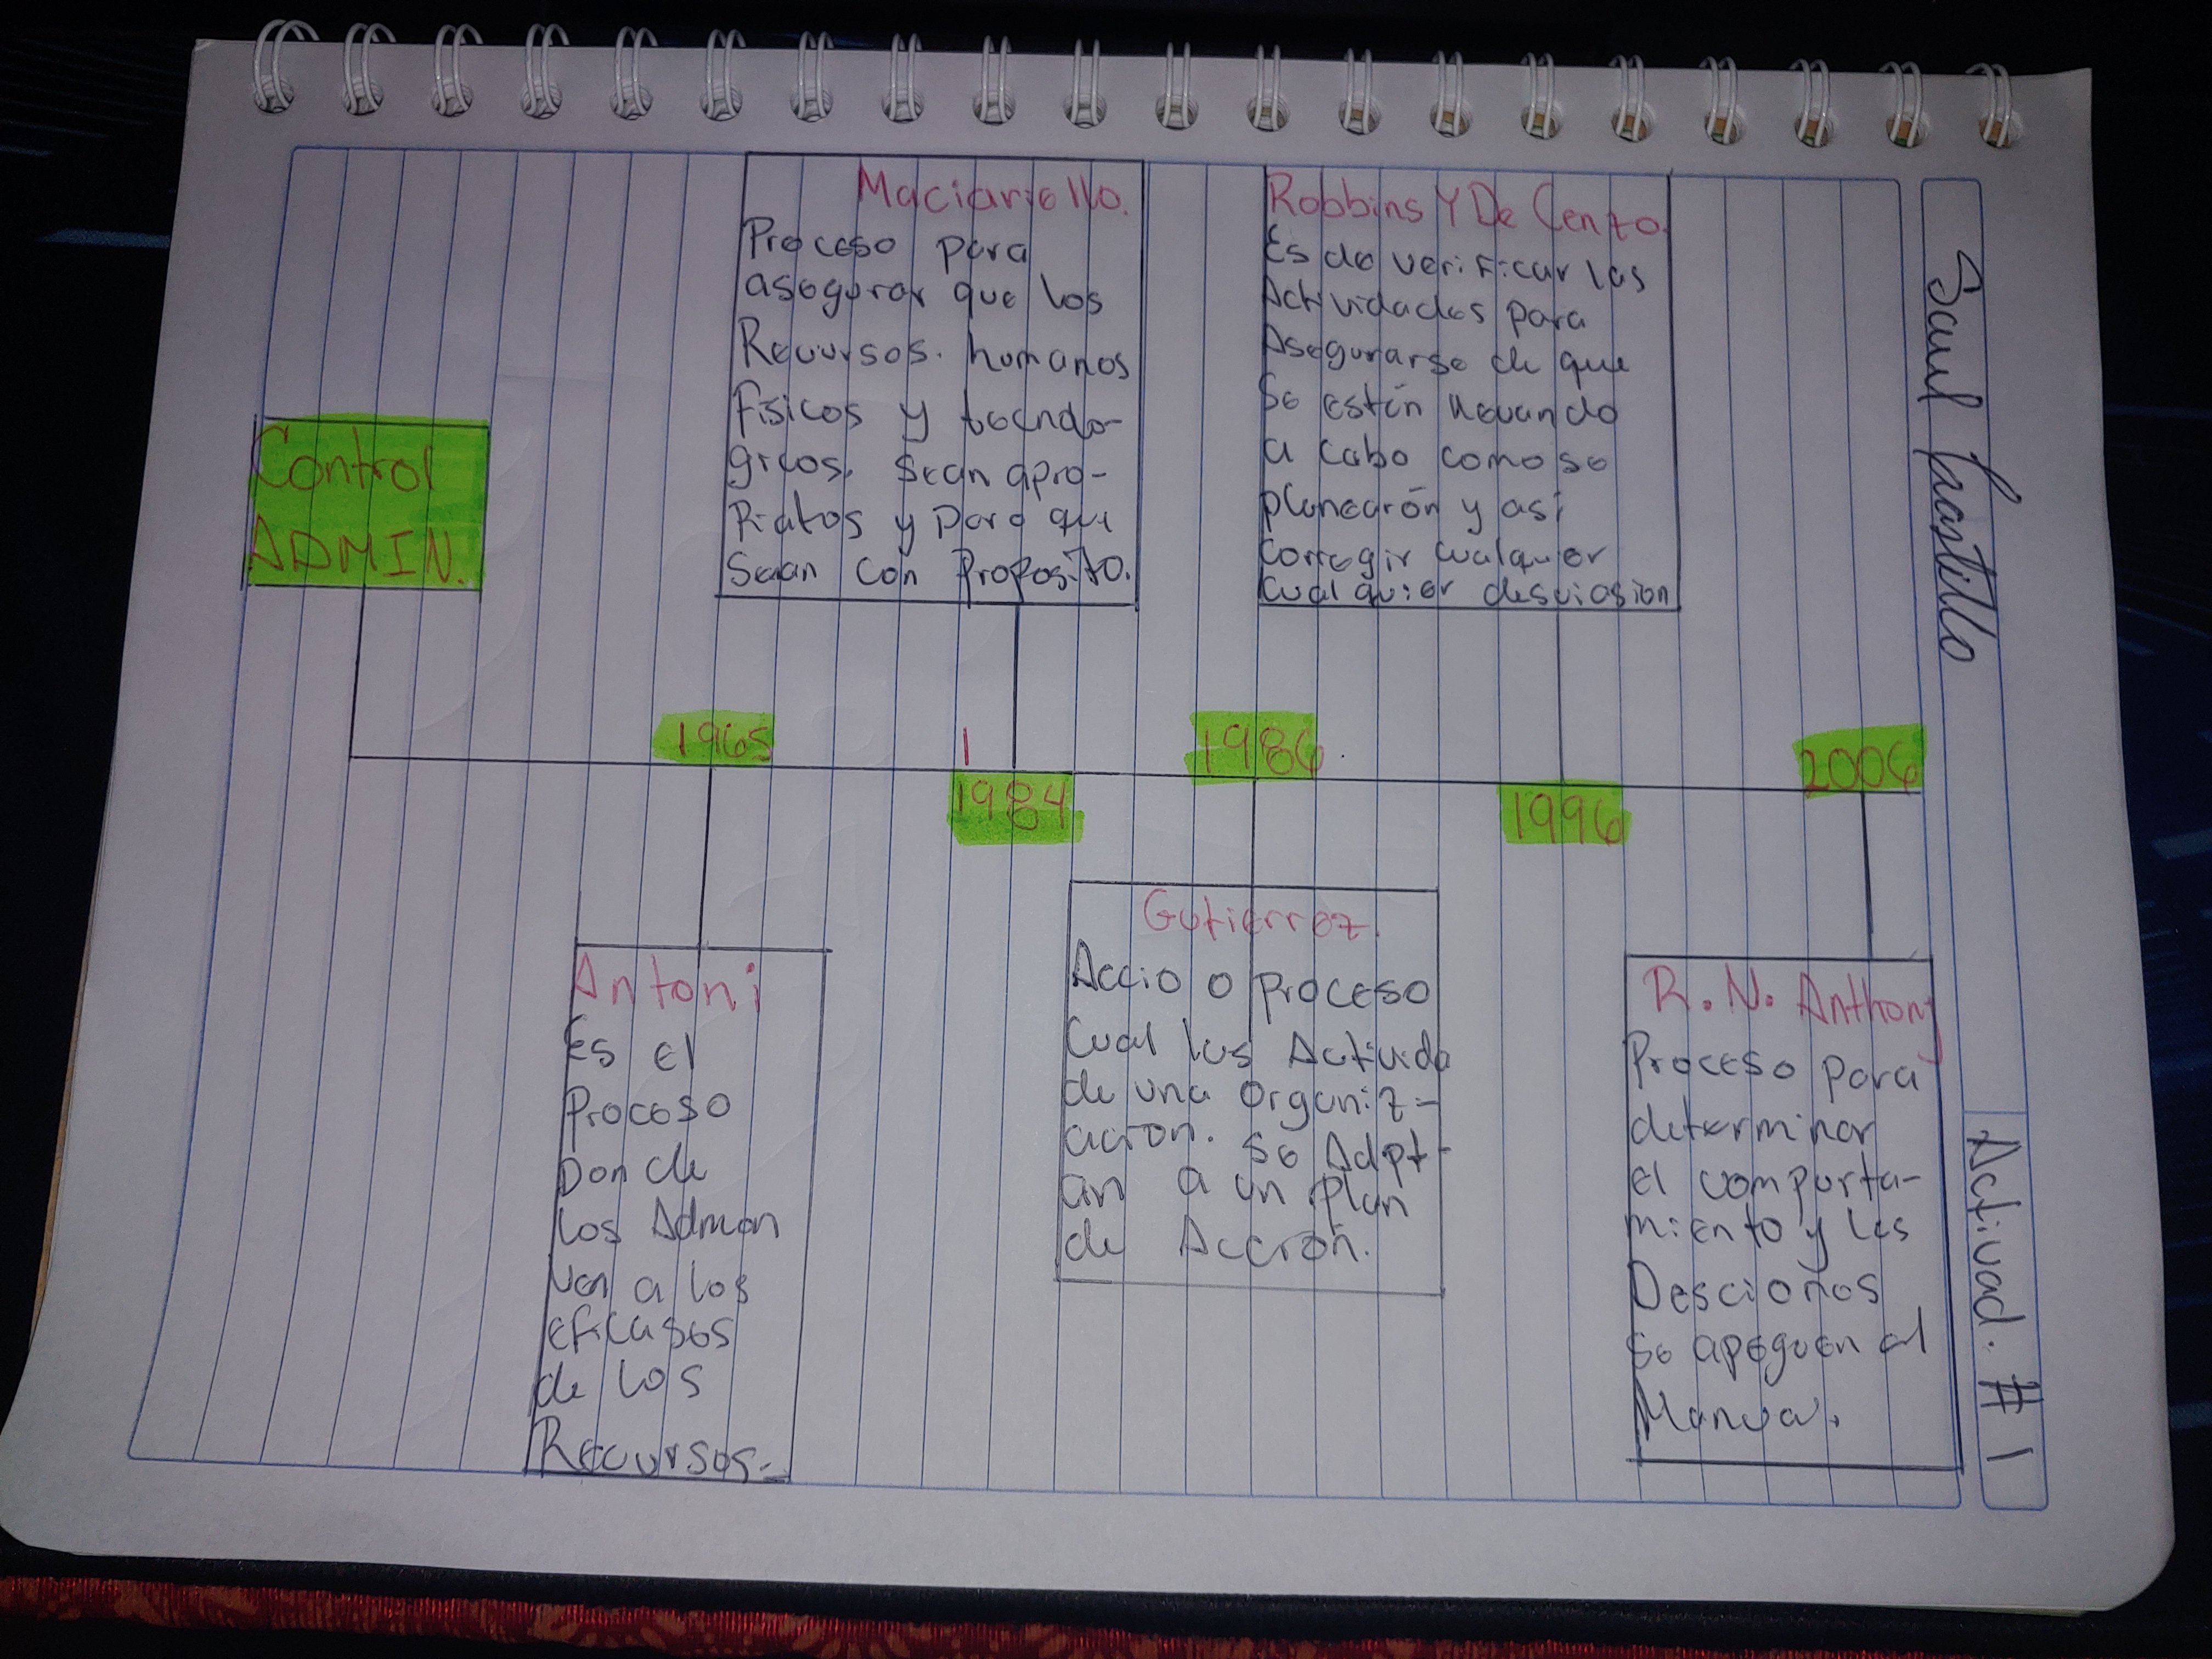 Saul Castillo
Activad. # 1
Control
ADMIN.
Maciariello.
Proceso para
asegurar que los
Recursos. humanos
fisicos y tecnolo-
gicos. sean apro-
Piatos y para que
Sean con Proposito.
Robbins Y De Cenzo.
Es de verificar las
Actividades para
Asegurarse de que
Se estén llevando
a cabo como se
planearón y así
corregir cualquer
cualquier desviasion
1965
1
1984
1986
1996
2006
Antoni
Es el
Proceso
Donde
los Admon
ven a los
eficases
de los
Recursos.
Gutierrez.
Accio o proceso
Cual las Activida
de una organiz-
acion. se Adpt-
an a un plan
de Acción.
R. N. Anthony
Proceso para
determinar
el comporta-
miento y las
Desciones
se apeguen al
Manual.